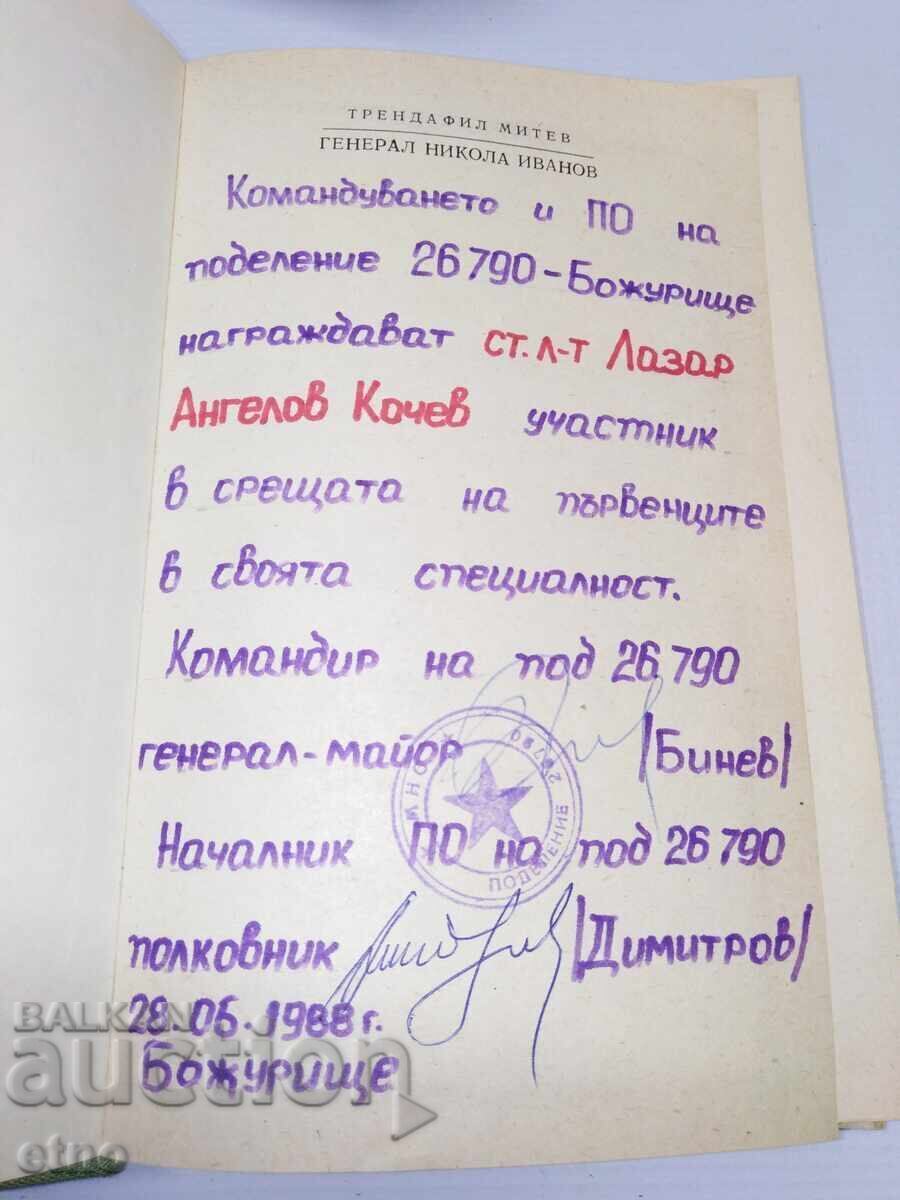 ТРЕНДАФИЛ МИТЕВ
ГЕНЕРАЛ НИКОЛА ИВАНОВ
Командуването и ПО на
поделение 26790-Божурище
награждават ст.л-т Лазар
Ангелов Кочев участник
в срещата на първенците
в своята специалност.
Командир на под 26790
генерал-майор /Бинев/
26790
ПОДЕЛЕНИЕ
Началник ПО на под 26790
полковник /Димитров/
28.06.1988 г.
Божурище
BALKAN
auction
etno